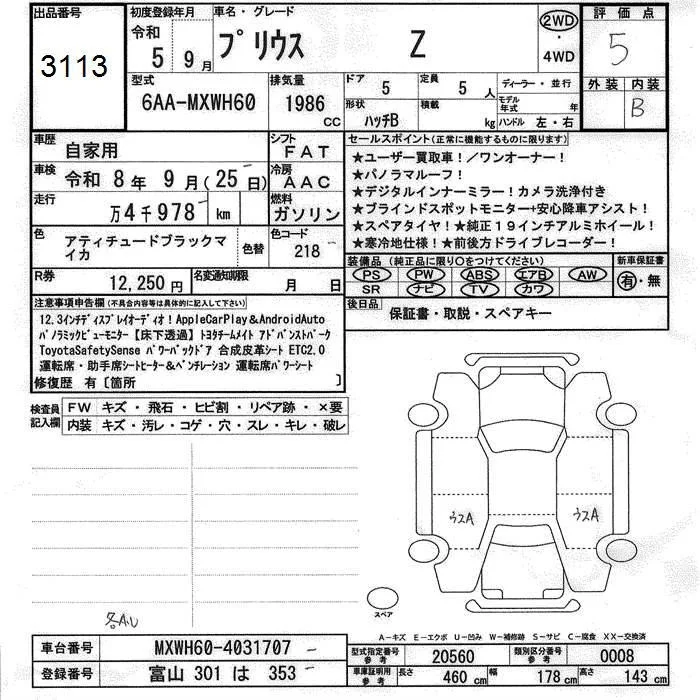 出品番号
3113
初度登録年月
令和
5 9月
車名・グレード
プリウス Z
2WD
・
4WD
評価点
5
型式
6AA-MXWH60
排気量
1986
CC
ドア 5
定員 5 人
形状 ハッチB
積載 kg
ディーラー・並行
モデル年式 年
ハンドル 左・右
外装 内装
B
車歴 自家用
シフト FAT
車検 令和 8年 9月(25日)
冷房 AAC
走行 万4千978 km
燃料 ガソリン
色 アティチュードブラックマイカ
色替
色コード 218
R券 12,250円
名変通知期限 月 日
セールスポイント(正常に機能するものに限ります)
★ユーザー買取車!/ワンオーナー!
★パノラマルーフ!
★デジタルインナーミラー!カメラ洗浄付き
★ブラインドスポットモニター+安心降車アシスト!
★スペアタイヤ!★純正19インチアルミホイール!
★寒冷地仕様!★前後方ドライブレコーダー!
装備品(純正品に限り○をつけてください)
PS PW ABS エアB AW
SR ナビ TV カワ
新車保証書
有・無
後日品 保証書・取説・スペアキー
注意事項申告欄(不具合内容等は具体的に記入して下さい)
12.3インチディスプレイオーディオ!AppleCarPlay&AndroidAuto
パノラミックビューモニター【床下透過】トヨタチームメイト アドバンストパーク
ToyotaSafetySense パワーバックドア 合成皮革シート ETC2.0
運転席・助手席シートヒーター&ベンチレーション 運転席パワーシート
修復歴 有〔箇所
検査員記入欄
FW キズ・飛石・ヒビ割・リペア跡・×要
内装 キズ・汚レ・コゲ・穴・スレ・キレ・破レ
ウスA ウスA
スペア
各A.U
A-キズ E-エクボ U-凹み W-補修跡 S-サビ C-腐食 XX-交換済
車台番号 MXWH60-4031707
登録番号 富山 301 は 353
型式指定番号 参考 20560
類別区分番号 参考 0008
車庫証明用 参考 長さ 460 cm 幅 178 cm 高さ 143 cm